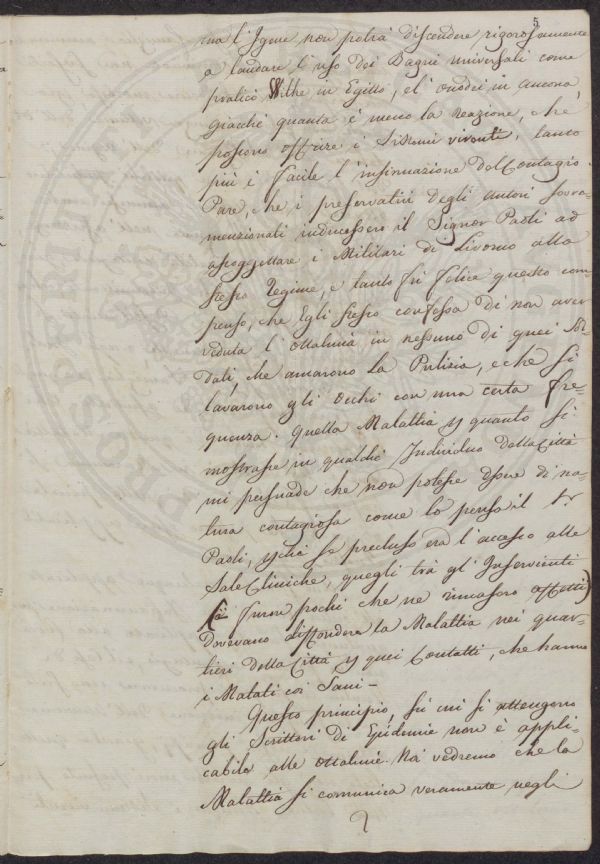 5
ma l'Igene non potrà discendere rigorosamente
a laudare l'uso dei Bagni universali come
praticò White in Egitto, e l' Omodei in Ancona,
giacchè quanto è meno la reazione, che
possono offrire i Sistemi viventi, tanto
più è facile l'insinuazione del Contagio.
Pare, che i preservativi degli autori sovra-
menzionati inducessero il Signor Paoli ad
assoggettare i Militari di Livorno allo
stesso Regime, e tanto fu felice questo com-
penso, che Egli stesso confessa di non aver
veduta l'Ottalmia in nessuno di quei Sol-
dati, che amarono la Pulizia, e che si
lavarono gli Occhi con una certa fre-
quenza. Quella Malattia p quanto si
mostrasse in qualche Individuo della Città
mi persuade che non potesse essere di na-
tura contagiosa come lo pensa il Sr
Paoli, pchè se precluso era l'accesso alle
Sale Cliniche, quegli trà gl' Inservienti
(e furon pochi che ne rimasero affetti)
dovevano diffondere la Malattia nei quar-
tieri della Città p quei Contatti, che hanno
i Malati coi Sani -
Questo principio, su cui si attengono
gli Scrittori di Epidemie non è appli-
cabile alle Ottalmie. Noi vedremo che la
Malattia si comunica veramente negli